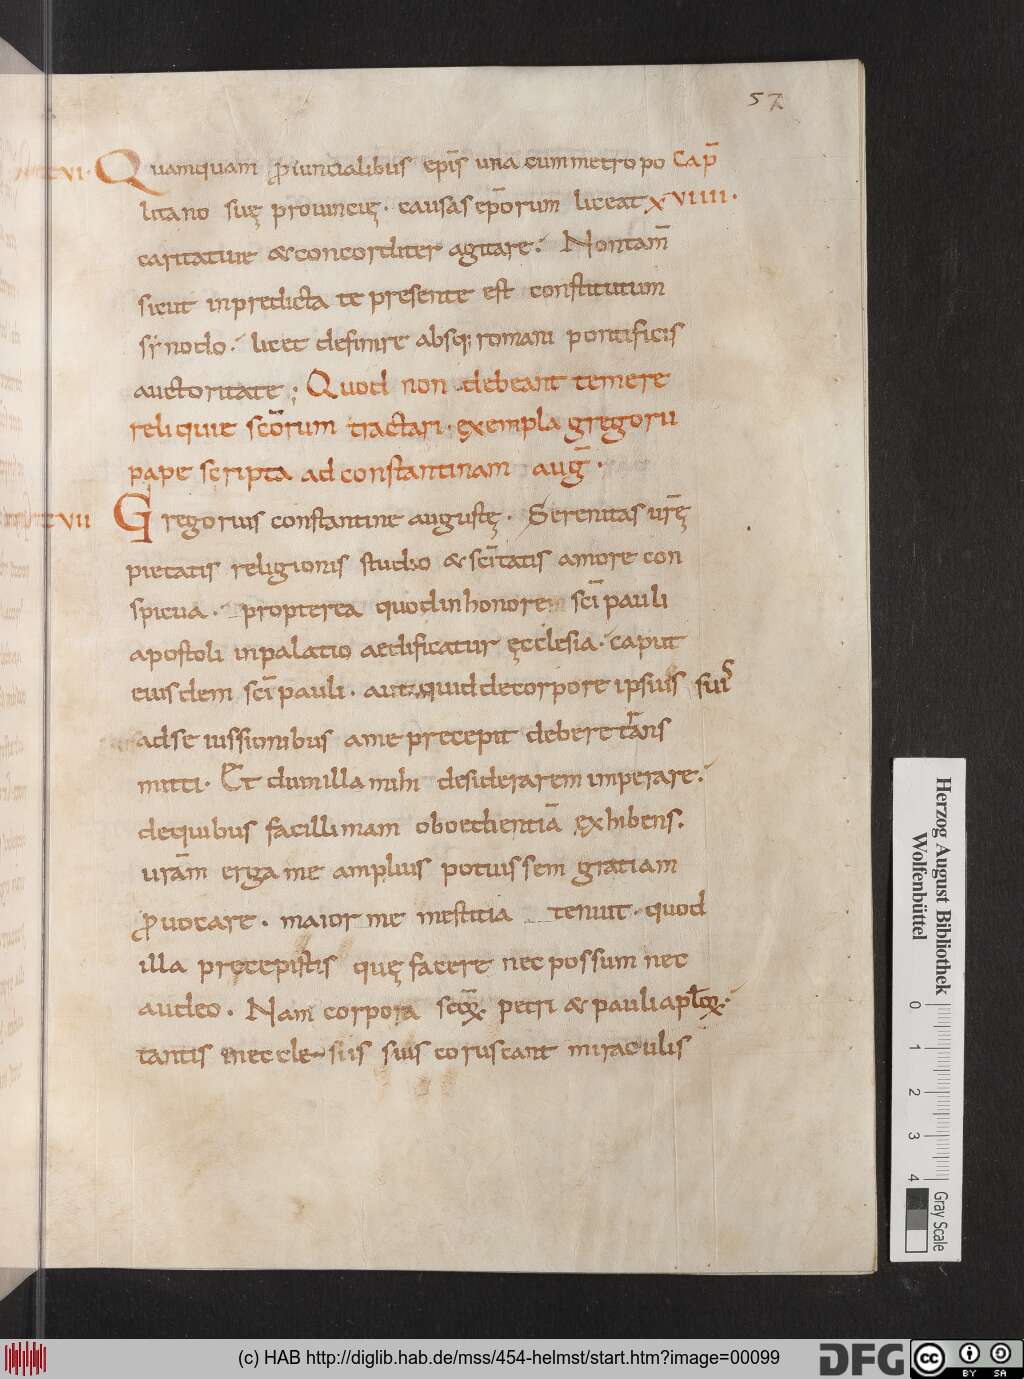 57
CVI. Quamquam ꝓuincialibus ep̄is una cum metropo Cap̄
litano suę prouincię. causas ep̄orum liceat XVIIII.
caritatiue & concorditer agitare. Non tam̄
sicut in predicta te presente est constitutum
synodo. licet definire absq; romani pontificis
auctoritate; Quod non debeant temere
reliquie sc̄orum tractari. exempla gregorii
pape scripta ad constantinam auḡ.
CVII Gregorius constantine augustę. Serenitas ur̄ę
pietatis religionis studio & sc̄itatis amore con
spicua. propterea quod in honore sc̄i pauli
apostoli in palatio aedificatur ęcclesia. caput
eiusdem sc̄i pauli. aut quid de corpore ipsius suis
ad se iussionibus a me precepit debere trans
mitti. Et dum illa mihi desiderarem imperare.
de quibus facillimam oboedientiā exhibens.
urām erga me amplius potuissem gratiam
ꝓuocare. maior me mestitia tenuit. quod
illa precepistis quę facere nec possum nec
audeo. Nam corpora sc̄oꝝ. petri & pauli apl̄oꝝ.
tantis in eccle-siis suis coruscant miraculis
Herzog August Bibliothek
Wolfenbüttel
0 1 2 3 4
Gray Scale
(c) HAB http://diglib.hab.de/mss/454-helmst/start.htm?image=00099
DFG
cc BY SA